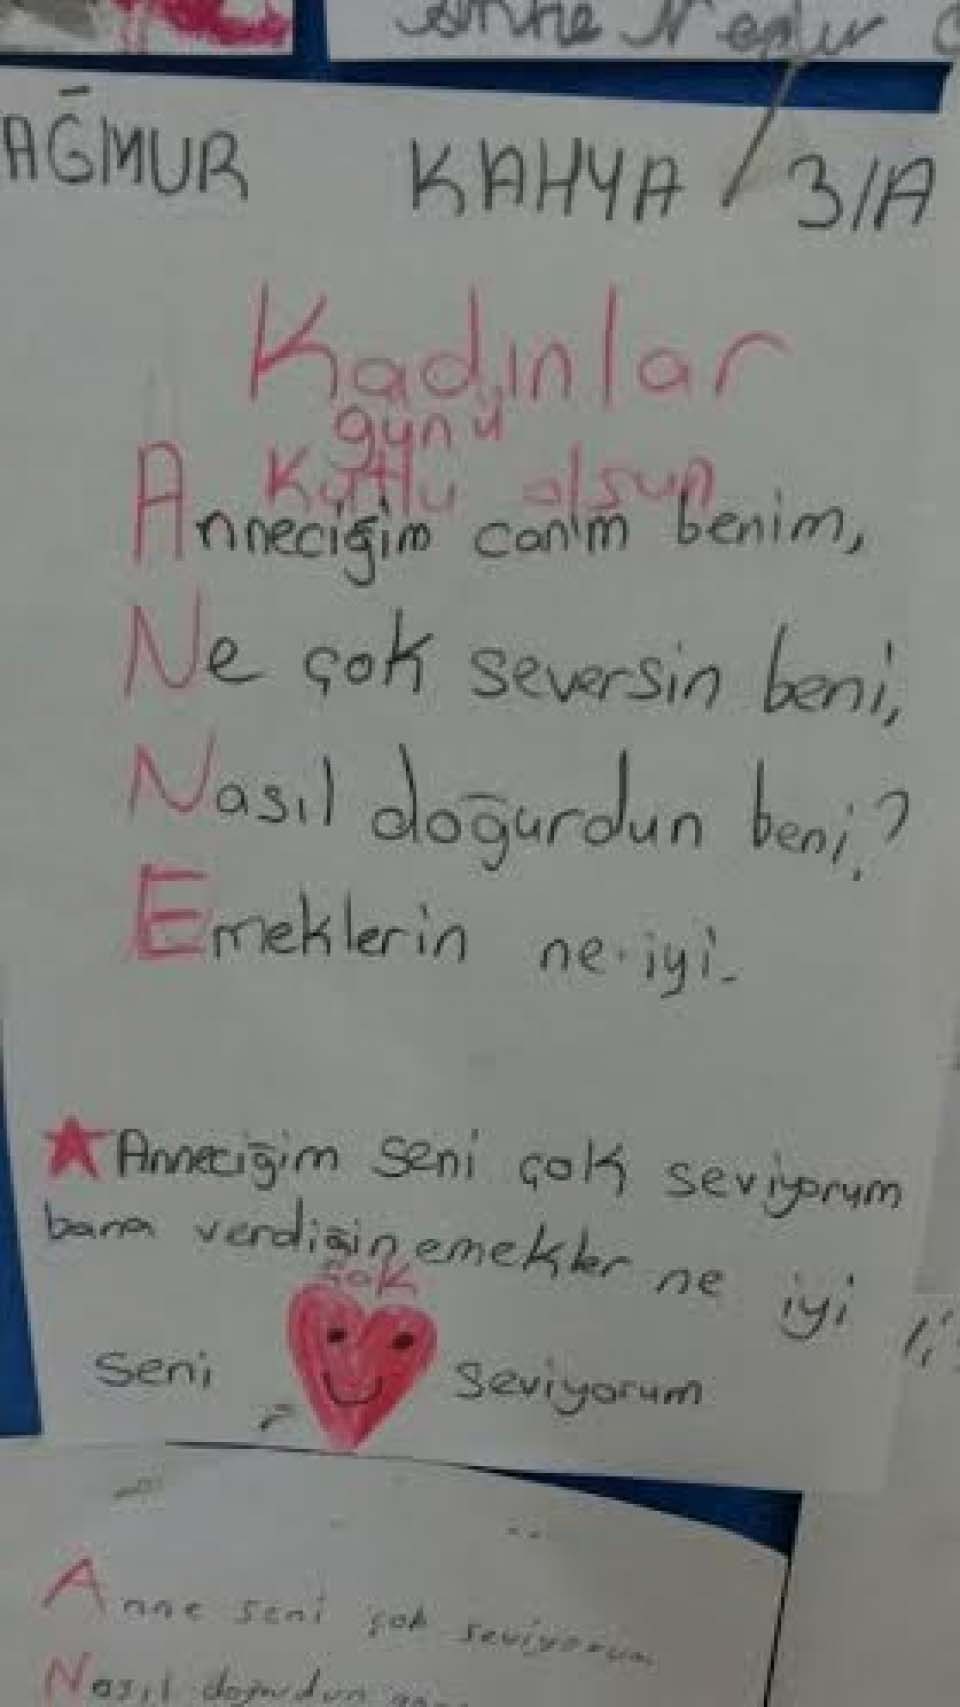 Anne Nedir
AĞMUR KAHYA / 3/A
Kadınlar
günü
Kutlu olsun
Anneciğim canım benim,
Ne çok seversin beni,
Nasıl doğurdun beni?
Emeklerin ne iyi.
Anneciğim seni çok seviyorum
bana verdiğin emekler ne iyi
çok
seni seviyorum
Anne seni çok seviyorum
Nasıl doğurdun